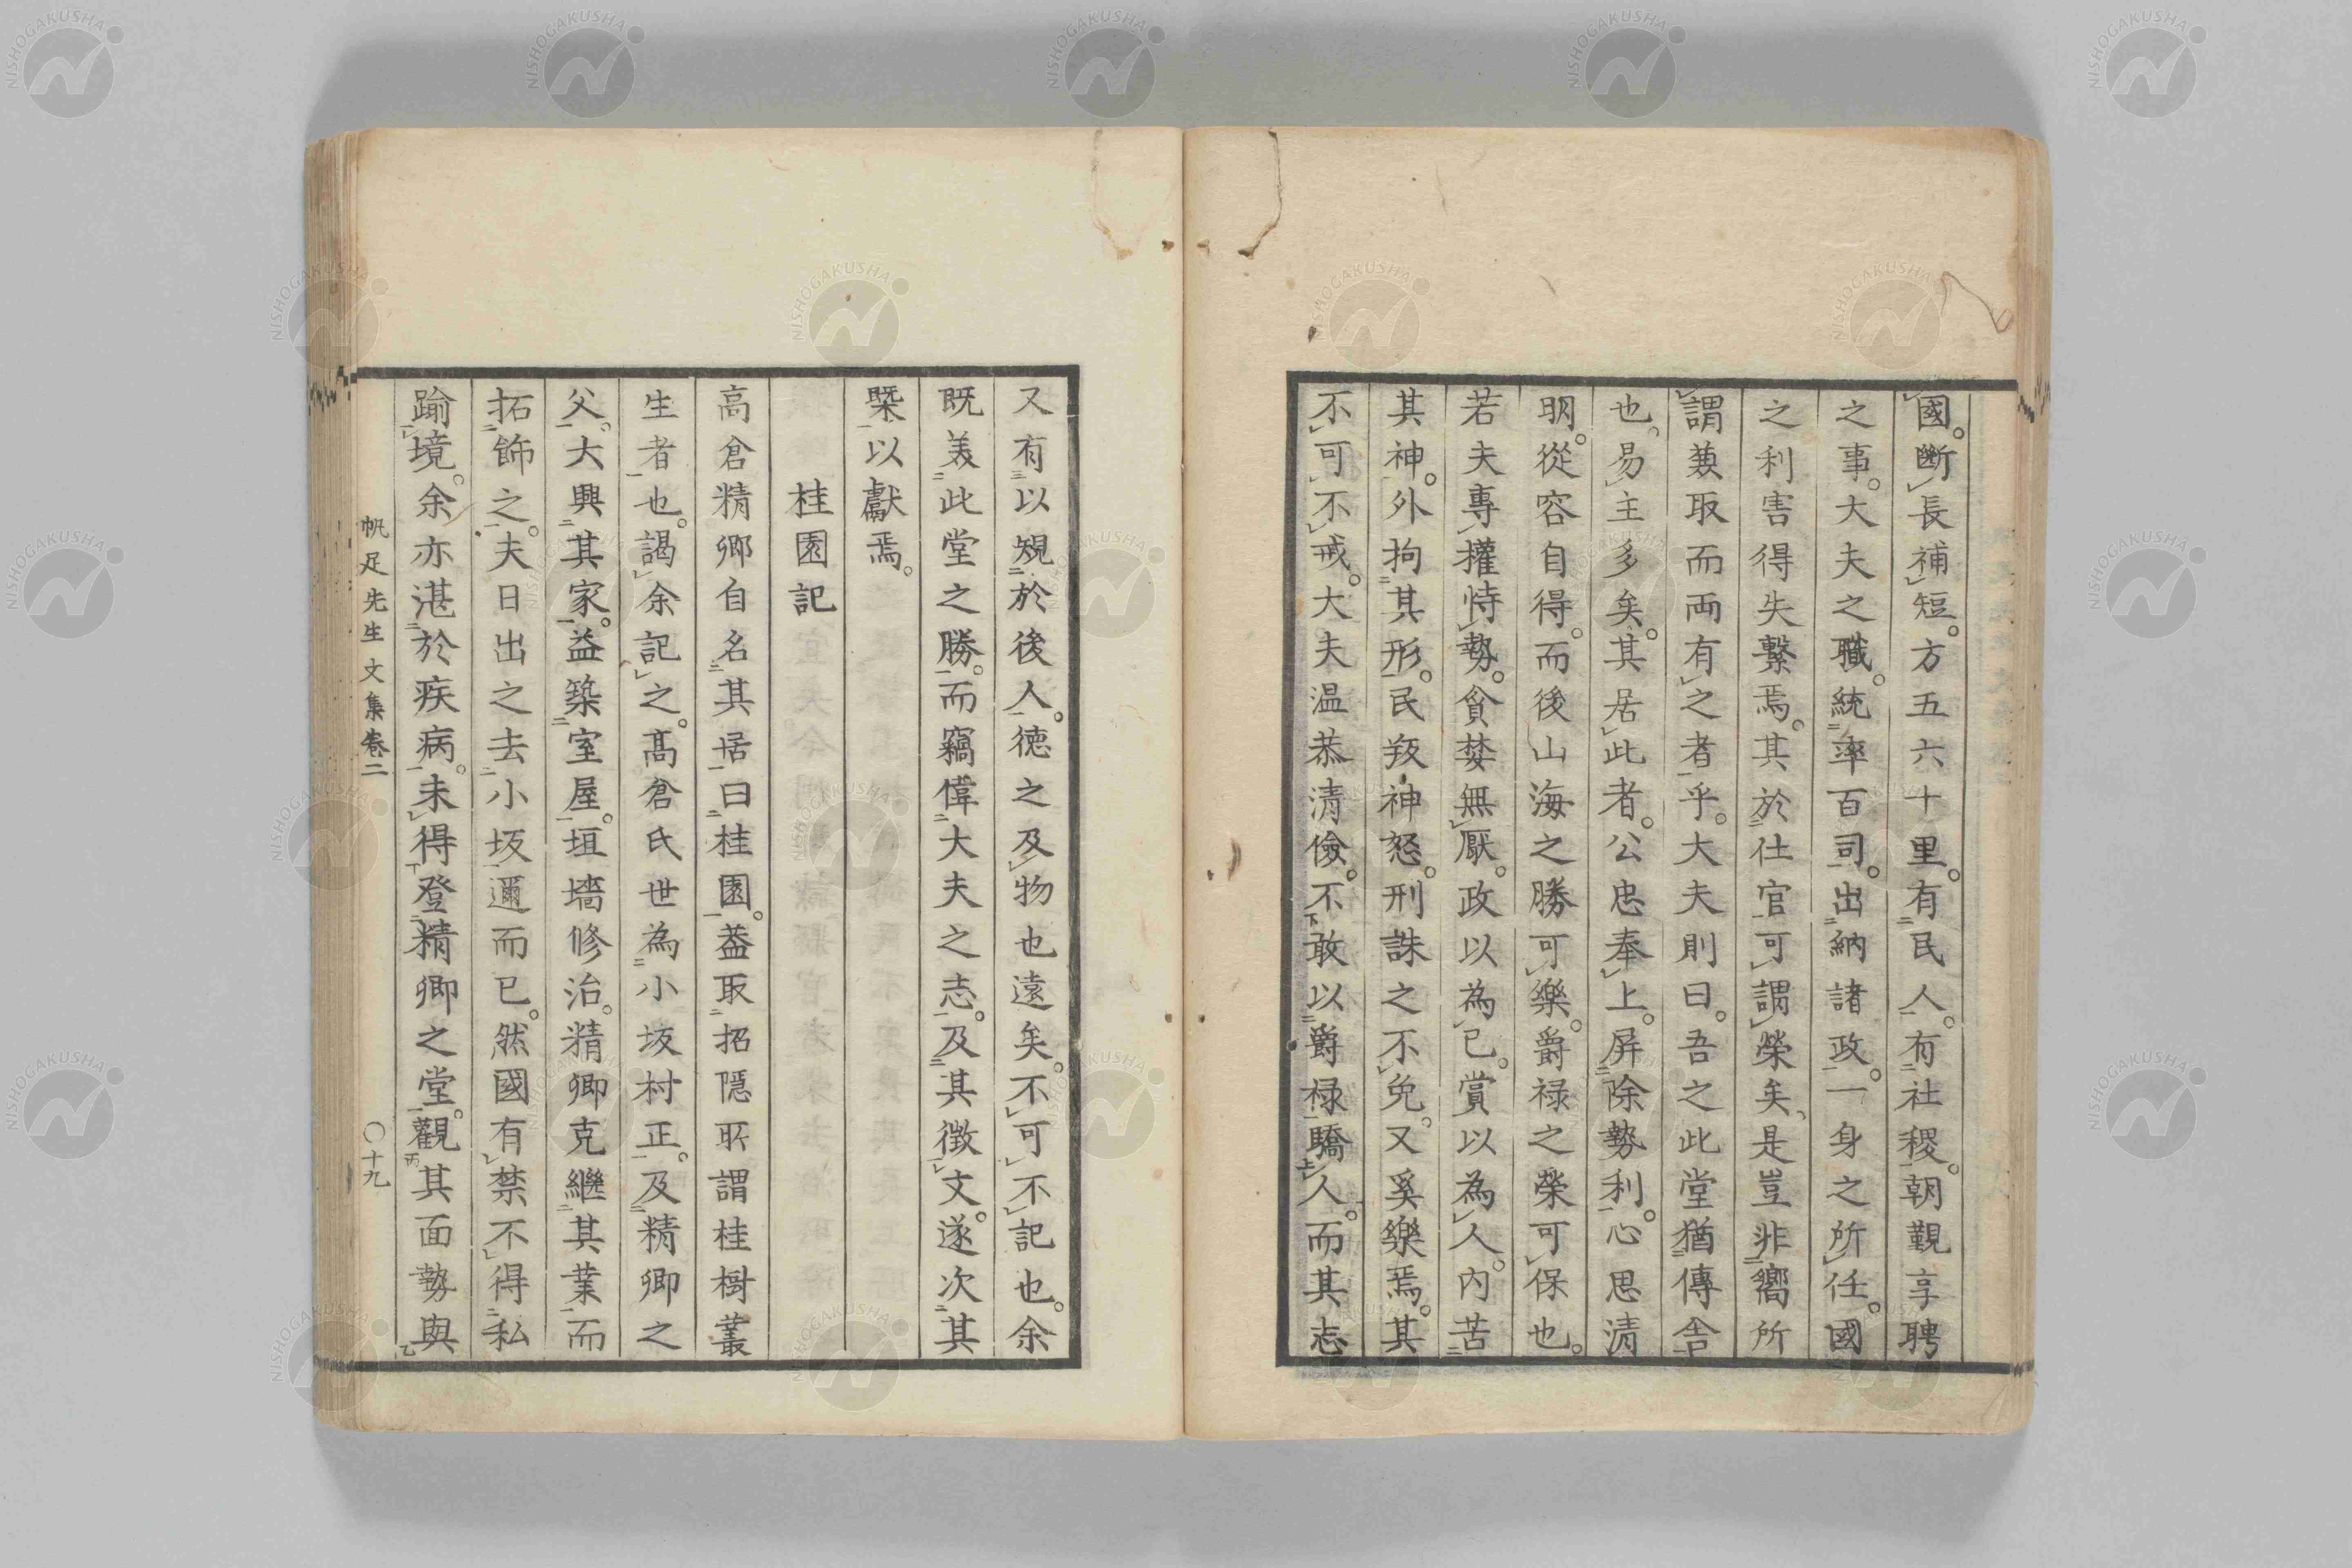 國。斷長補短。方五六十里。有民人。有社稷。朝覲享聘
之事。大夫之職。統率百司。出納諸政。一身之所任。國
之利害得失繫焉。其於仕官可謂榮矣、是豈非嚮所
謂兼取而両有之者乎。大夫則曰。吾之此堂猶傳舎
也、易主多矣。其居此者。公忠奉上。屏除勢利。心思清
明。從容自得。而後山海之勝可樂。爵禄之榮可保也。
若夫專權恃勢。貪婪無厭。政以為已。賞以為人。内苦
其神。外拘其形。民叛神怒。刑誅之不免。又奚樂焉。其
不可不戒。大夫温恭清儉。不敢以爵禄驕人。而其志
又有以規於後人。徳之及物也遠矣。不可不記也。余
既美此堂之勝。而竊偉大夫之志。及其徴文。遂次其
槩以獻焉。
桂園記
高倉精卿自名其居曰桂園。蓋取招隠所謂桂樹叢
生者也。謁余記之。高倉氏世為小坂村正。及精卿之
父。大興其家。益築室屋。垣墻修治。精卿克繼其業而
拓飾之。夫日出之去小坂邇而已。然國有禁不得私
踰境。余亦湛於疾病。未得登精卿之堂。觀其面勢與
帆足先生文集巻二
〇十九
NISHOGAKUSHA